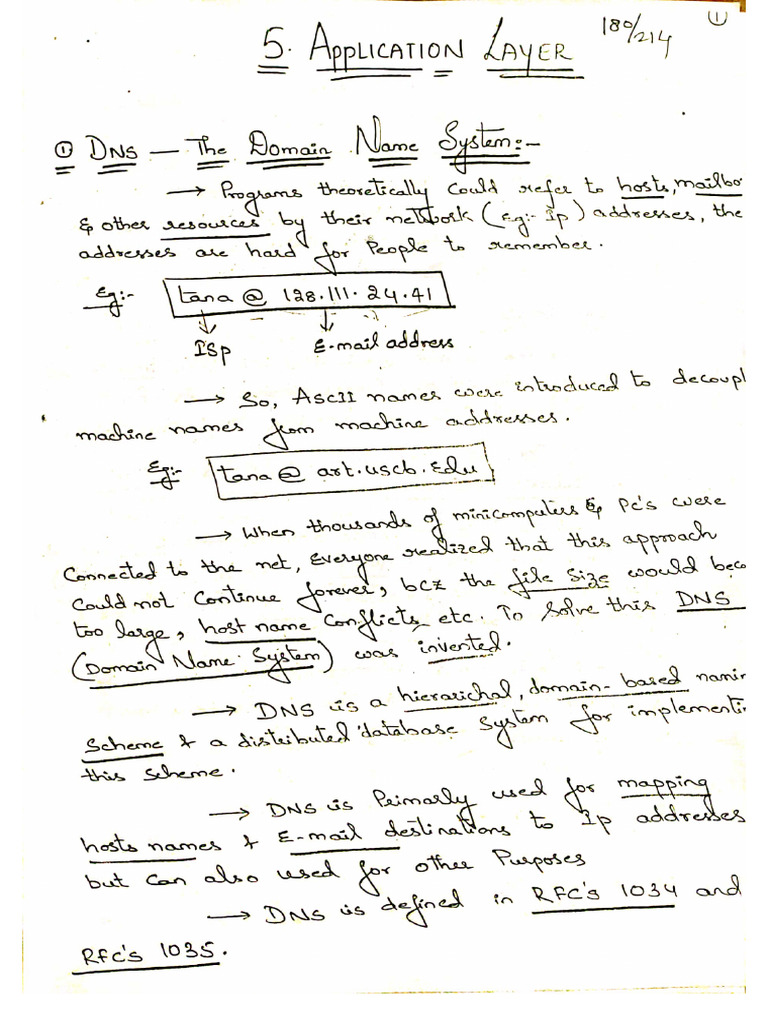 ①
5. APPLICATION LAYER 180/214
① DNS — The Domain Name System:-
→ Programs theoretically could refer to hosts, mailbo
& other resources by their network (Eg:- Ip) addresses, the
addresses are hard for People to remember.
Eg:- tana @ 128.111.24.41
ISp E-mail address
→ So, ASCII names were introduced to decoupl
machine names from machine addresses.
Eg:- tana @ art.uscb.Edu
→ When thousands of minicomputers & Pc's were
Connected to the net, Everyone realized that this approach
Could not Continue forever, bcz the file size would beco
too large, host name Conflicts etc. To Solve this DNS
(Domain Name System) was invented.
→ DNS is a hierarichal, domain-based namin
Scheme & a distributed database System for implementin
this Scheme.
→ DNS is Primarly used for mapping
hosts names & E-mail destinations to Ip addresses
but Can also used for other Purposes
→ DNS is defined in RFC's 1034 and
RFC's 1035.